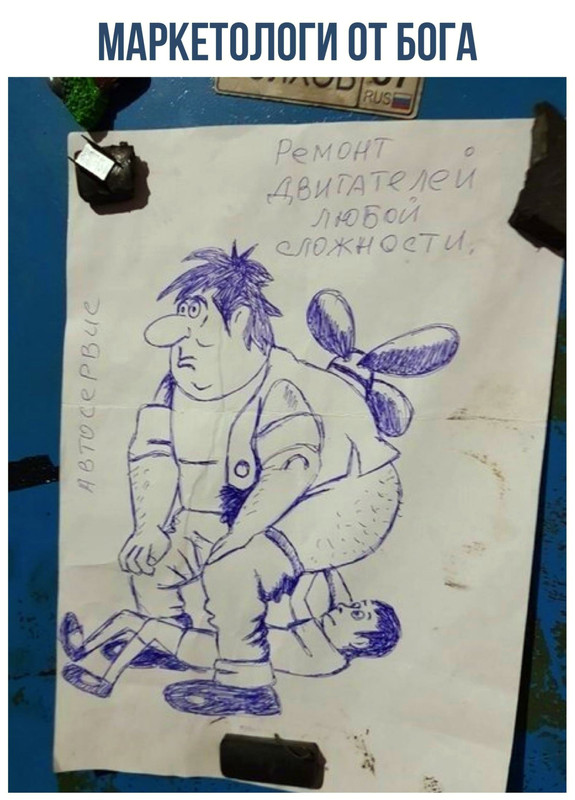 МАРКЕТОЛОГИ ОТ БОГА
RUS
Ремонт
двигателей
любой
сложности.
АВТОСЕРВИС